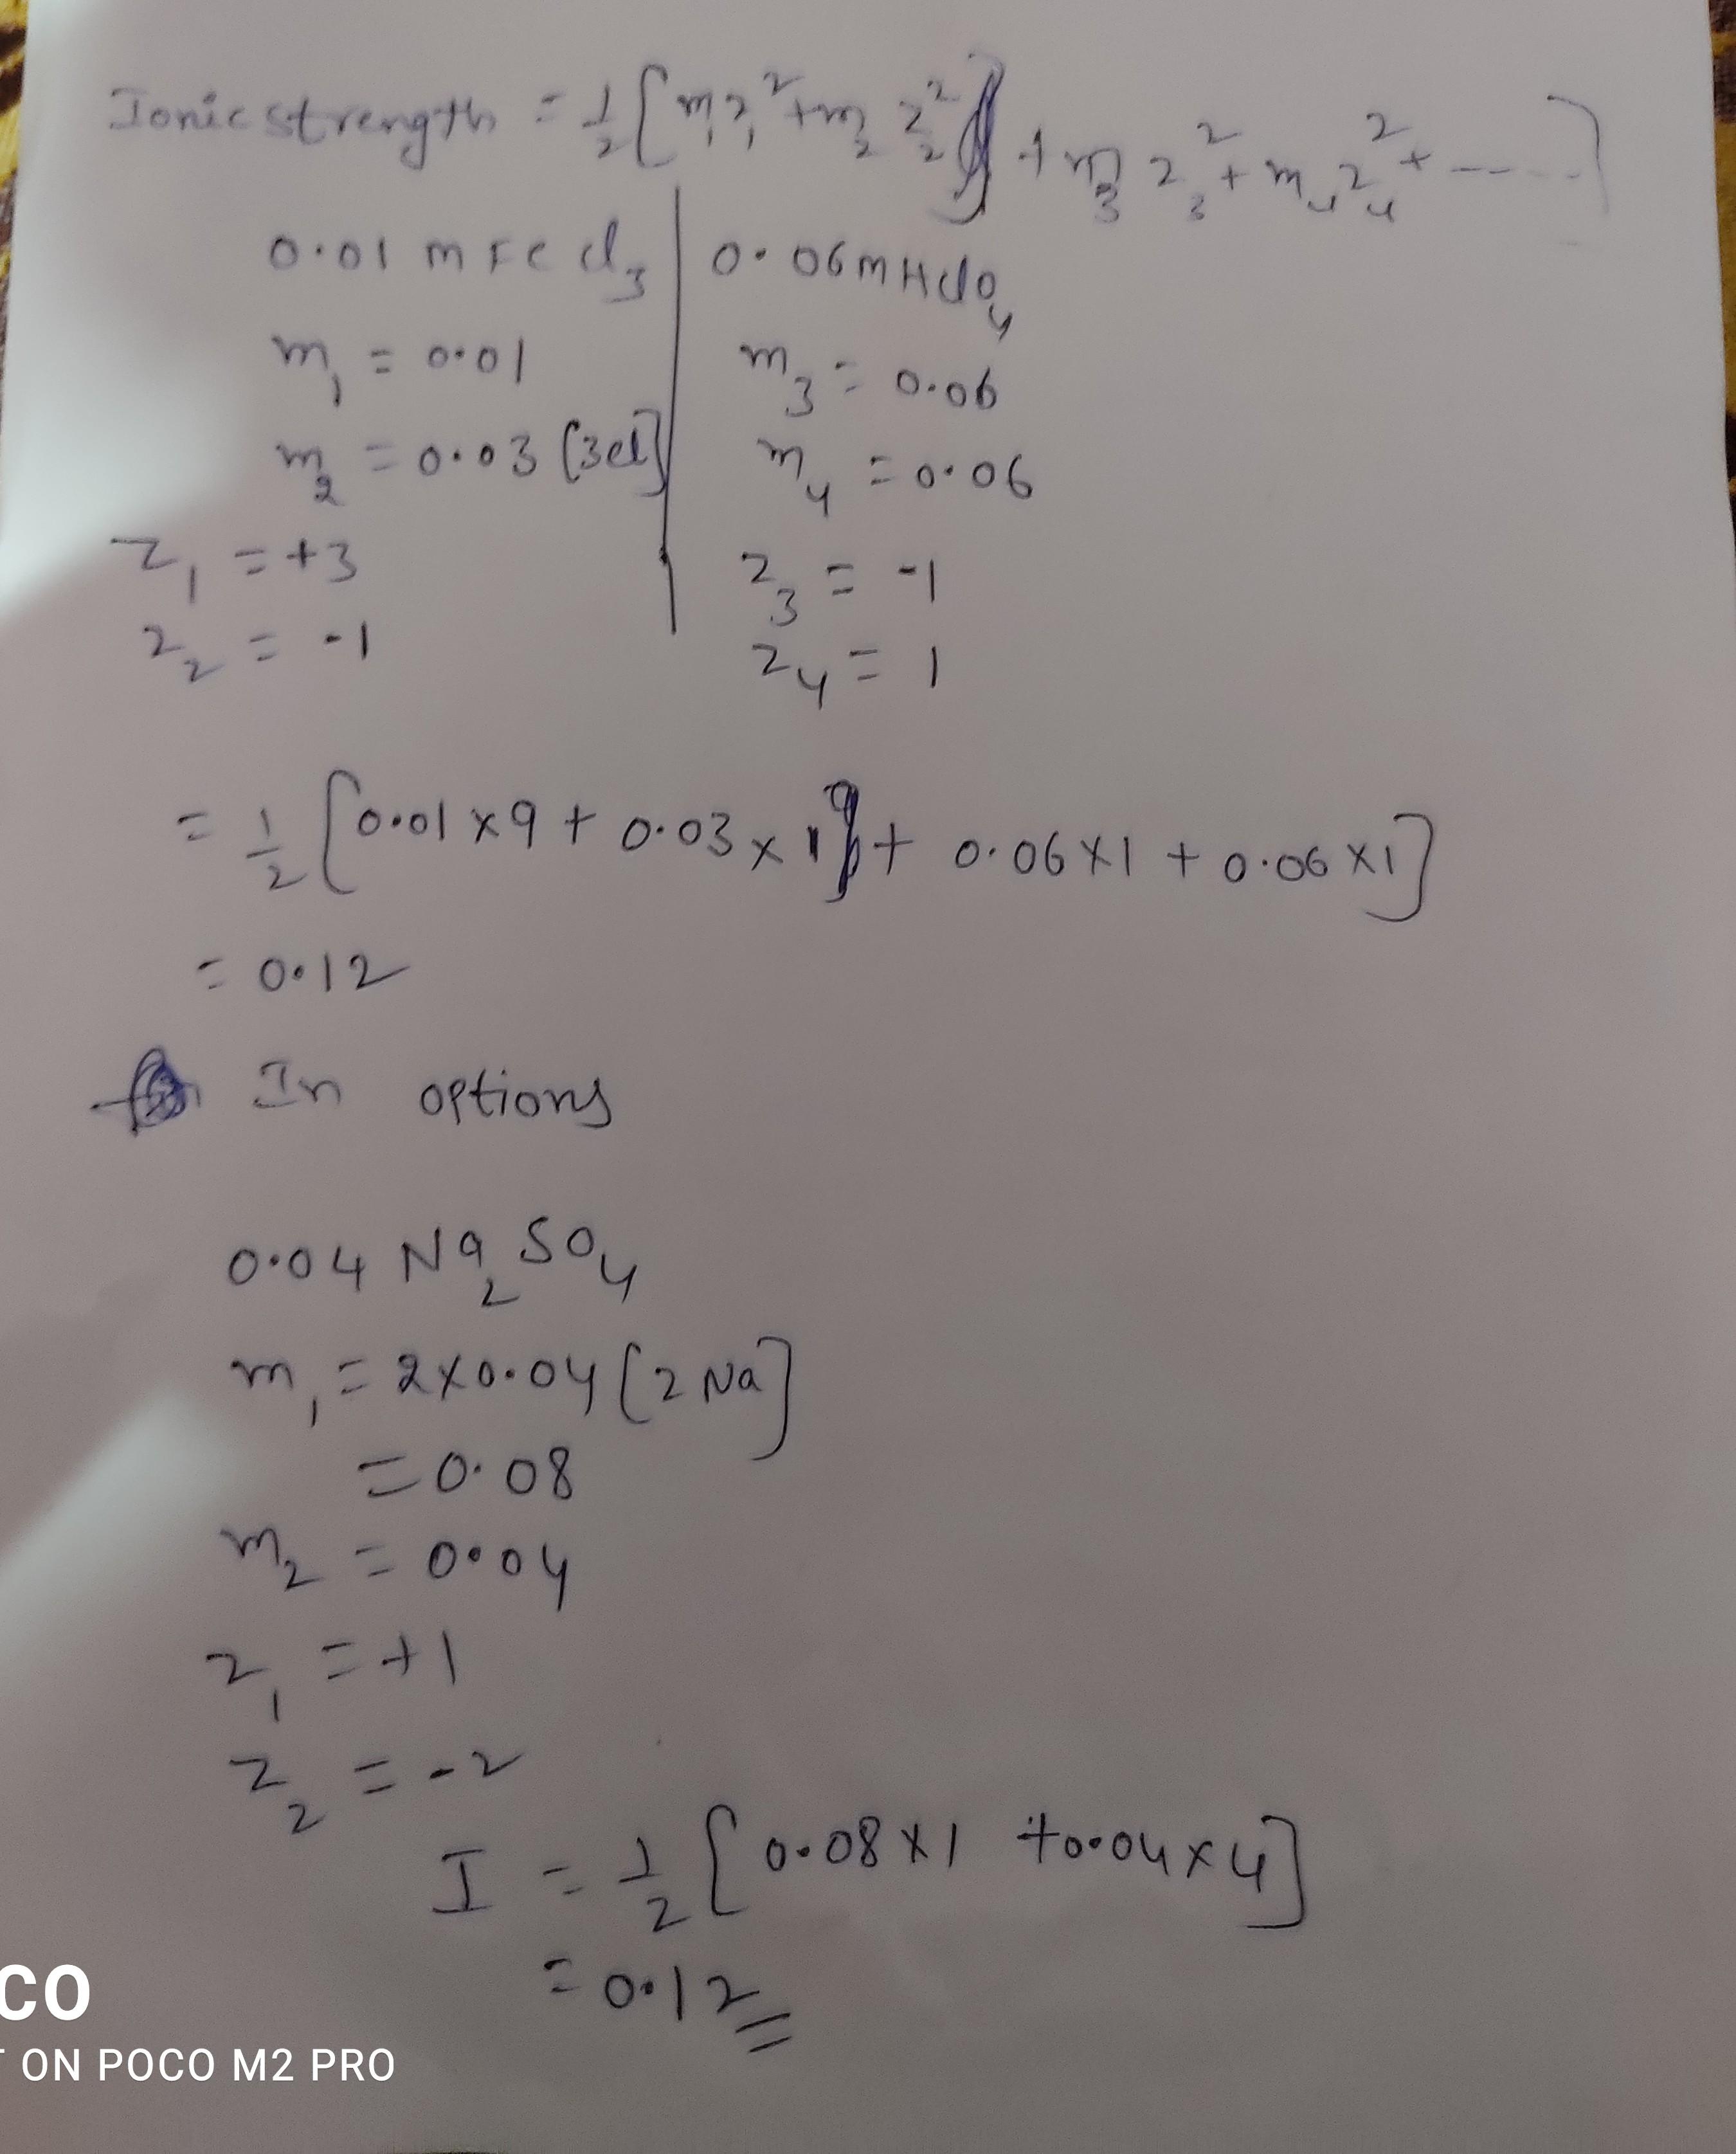 Ionic strength = 1/2 [m₁z₁² + m₂ z₂² + m₃ z₃² + m₄z₄² + ----- ]
0.01 m FeCl₃ | 0.06 m HClO₄
m₁ = 0.01 | m₃ = 0.06
m₂ = 0.03 [3Cl] | m₄ = 0.06
z₁ = +3 | z₃ = -1
z₂ = -1 | z₄ = 1
= 1/2 [0.01 × 9 + 0.03 × 1 + 0.06 × 1 + 0.06 × 1]
= 0.12
In options
0.04 Na₂SO₄
m₁ = 2×0.04 [2 Na]
= 0.08
m₂ = 0.04
z₁ = +1
z₂ = -2
I = 1/2 [0.08 × 1 + 0.04 × 4]
= 0.12
CO
ON POCO M2 PRO